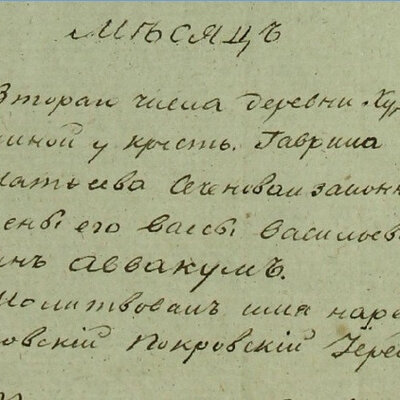 мѣсяцъ
Втораг числа деревни Ху
иной у крсть. Гаврила
матѣева Сеченова и законн
ены его Вассы Васильев
инъ Аввакумъ.
Молитвовалъ имя наре
ровскій Покровскій Іере